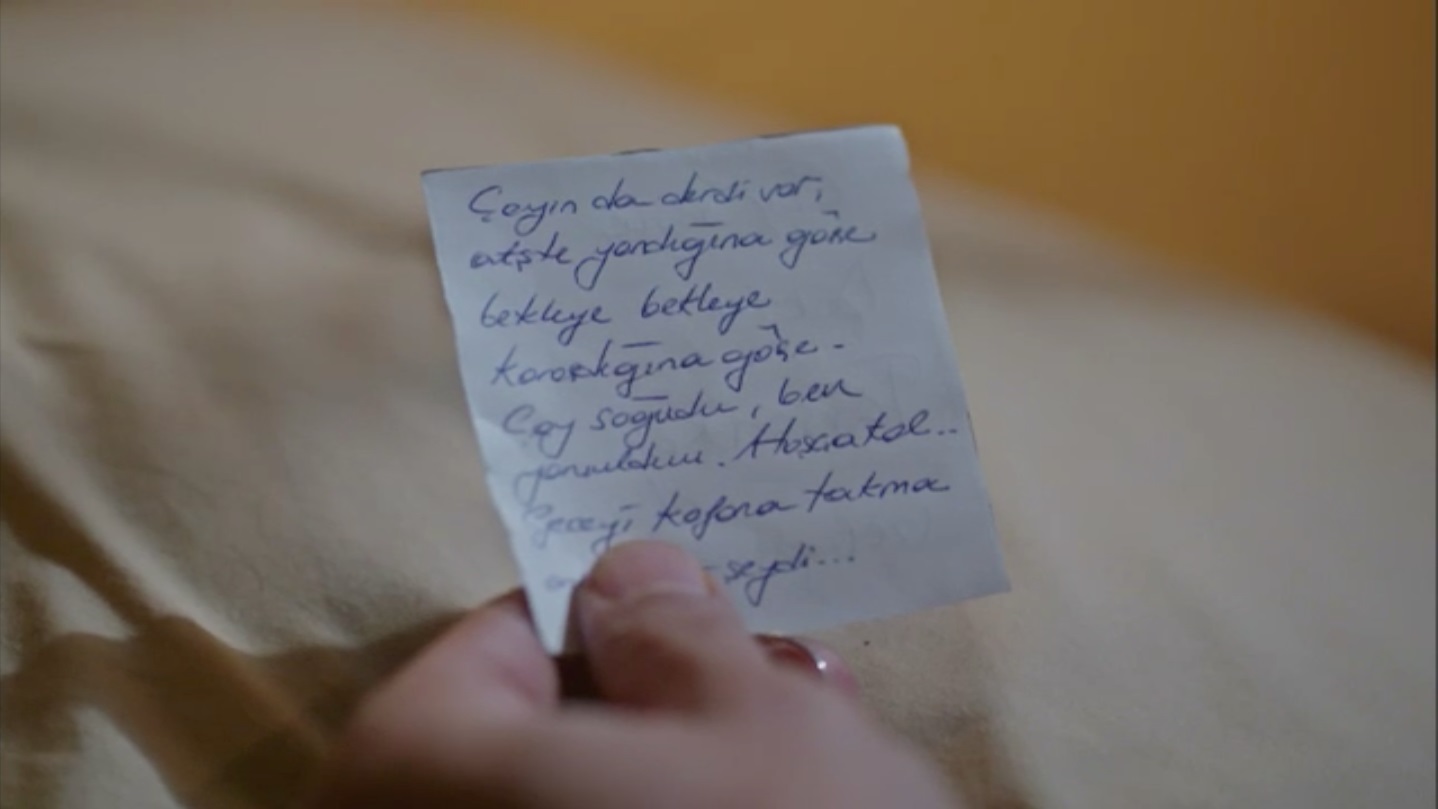 Çayın da derdi var,
ateşte yandığına göre
bekleye bekleye
karardığına göre.
Çay soğudu, ben
yoruldum. Hoşçakal..
Geceyi kafana takma